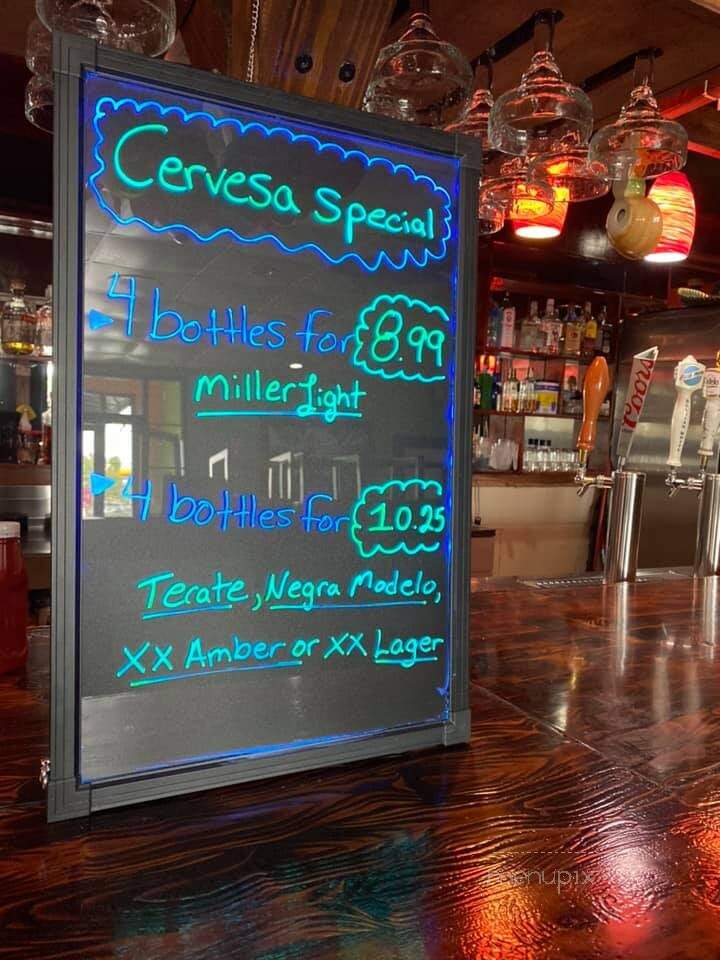 Cervesa Special
4 bottles for 8.99
Miller Light
4 bottles for 10.25
Tecate, Negra Modelo,
XX Amber or XX Lager
Coors
menupix